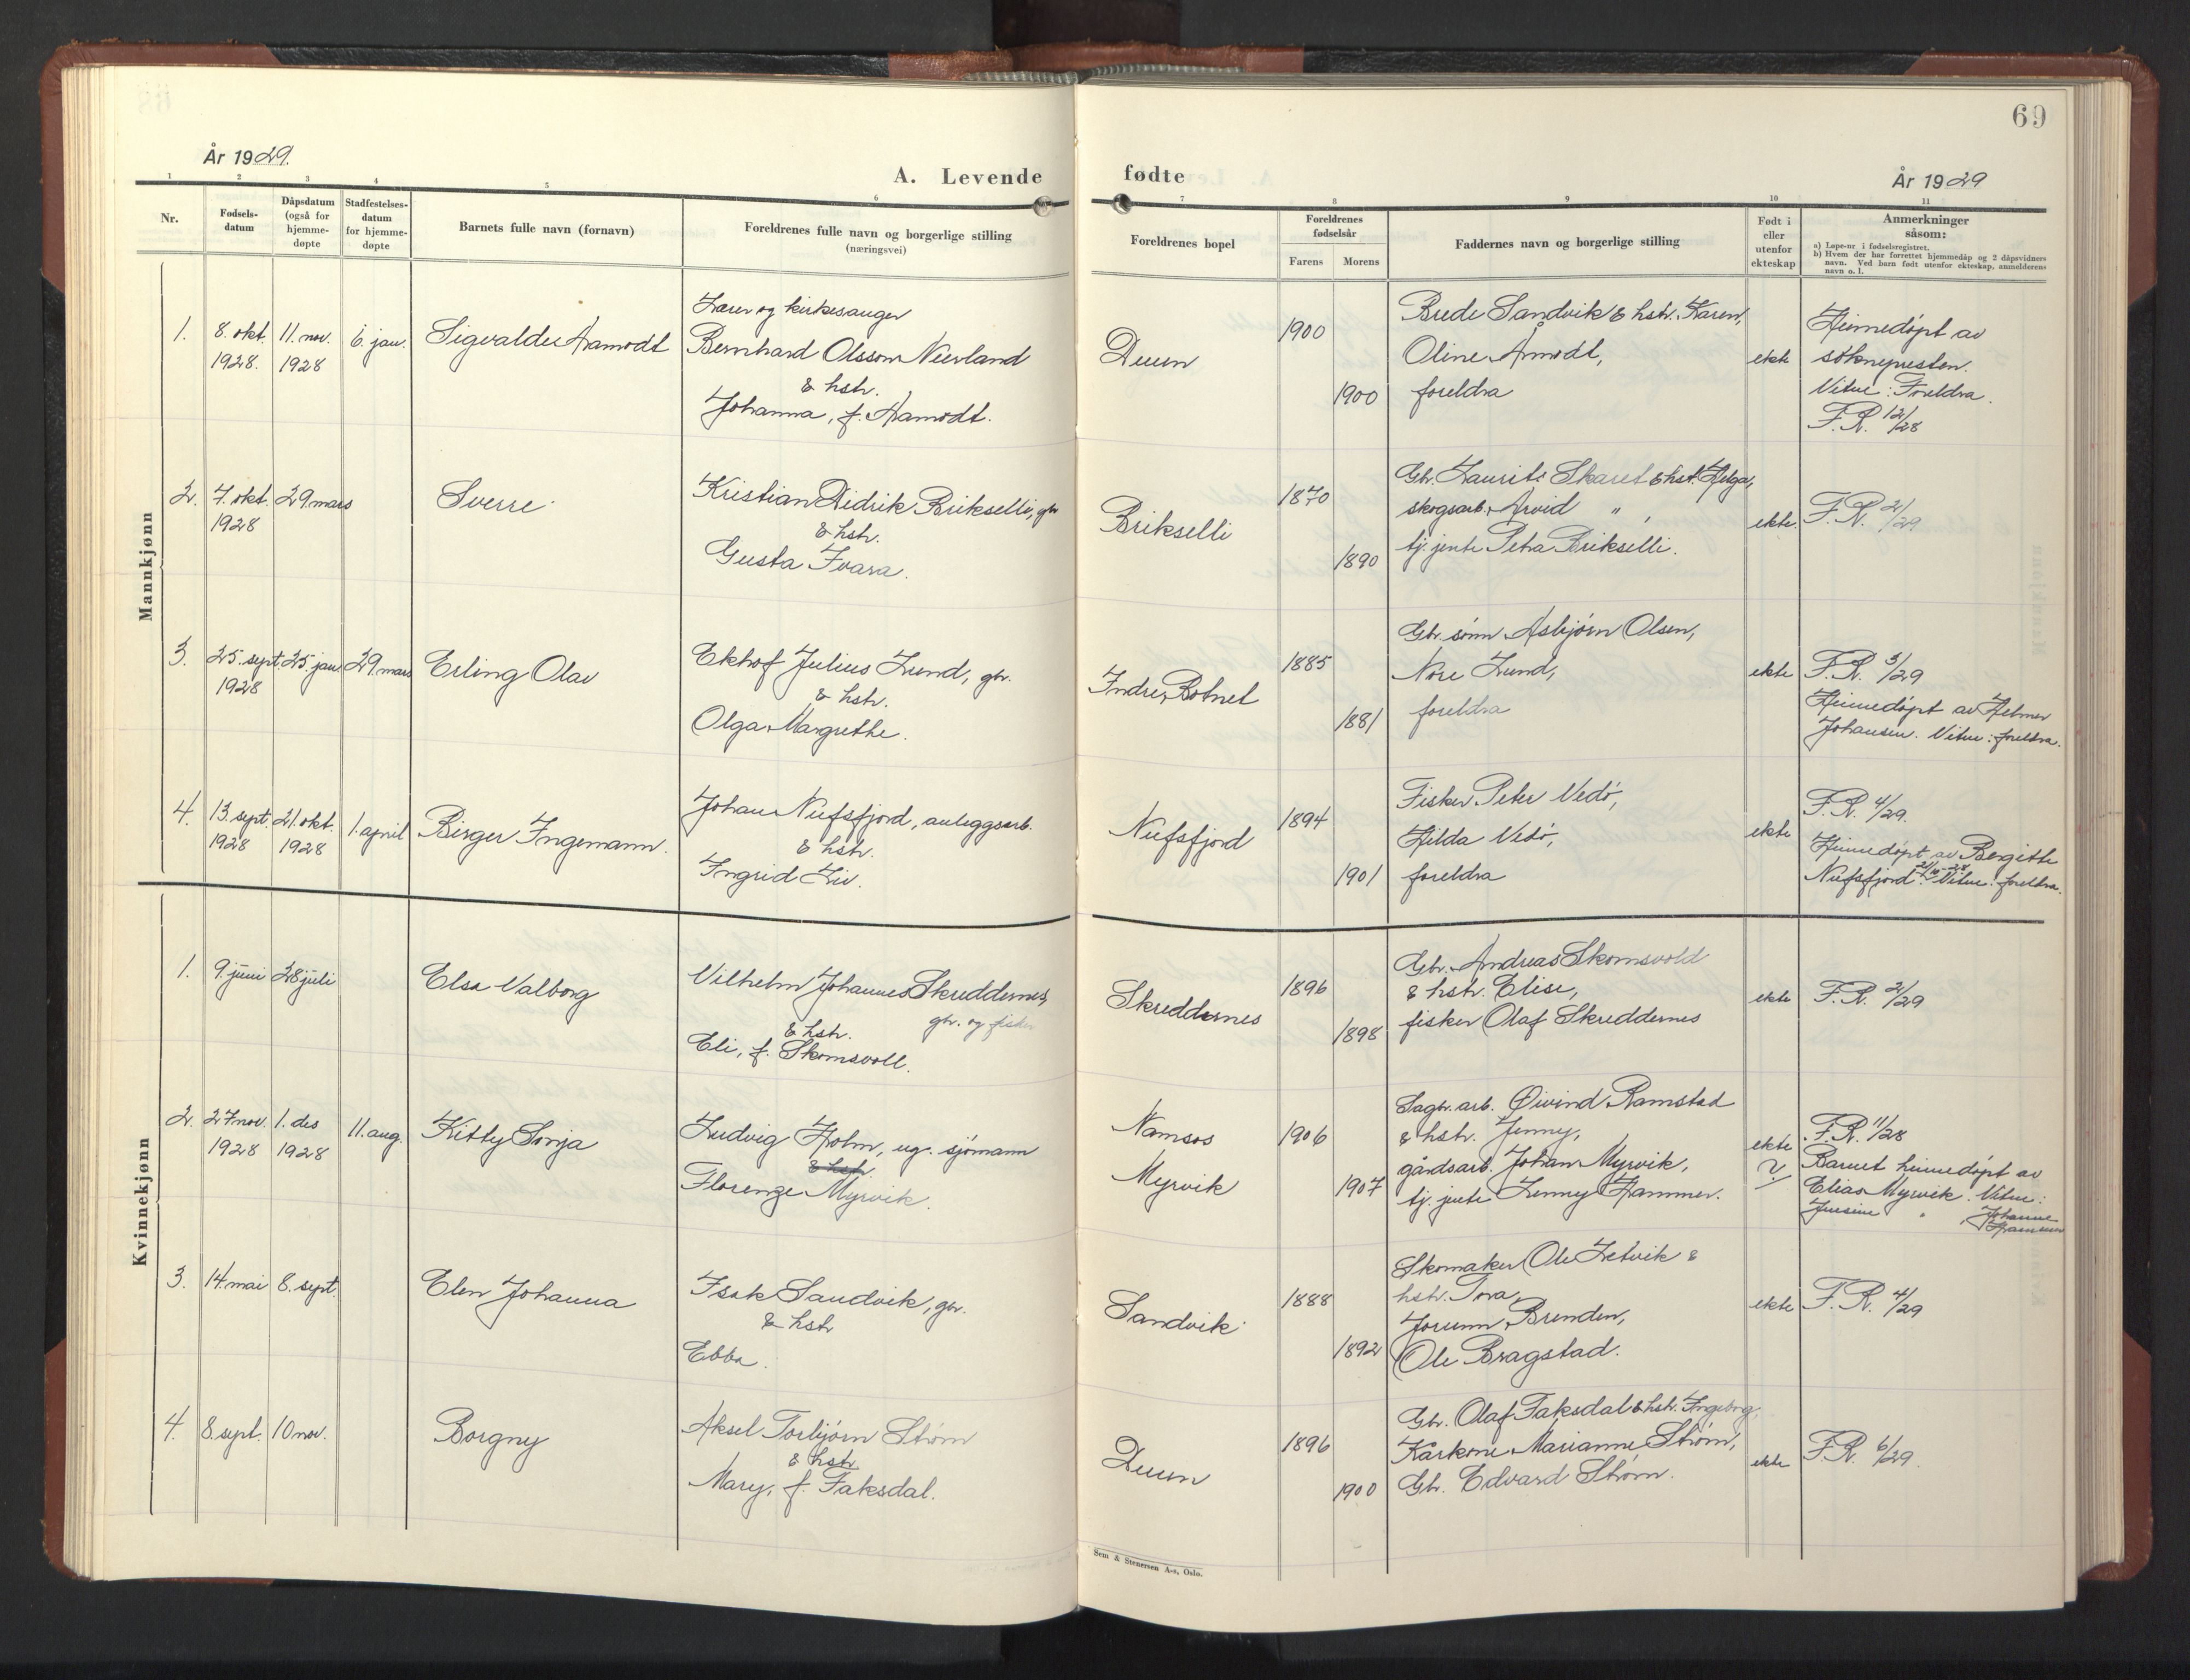 69
År 1929.
A. Levende
fødte
År 1929
1 2 3 4 5 6 7 8 9 10 11
Nr.
Fødsels-
datum
Dåpsdatum
(også for
hjemme-
døpte
Stadfestelses-
datum
for hjemme-
døpte
Barnets fulle navn (fornavn)
Foreldrenes fulle navn og borgerlige stilling
(næringsvei)
Foreldrenes bopel
Foreldrenes
fødselsår
Farens Morens
Faddernes navn og borgerlige stilling
Født i
eller
utenfor
ekteskap
Anmerkninger
såsom:
a) Løpe-nr i fødselsregistret.
b) Hvem der har forrettet hjemmedåp og 2 dåpsvidners
navn. Ved barn født utenfor ekteskap, anmelderens
navn o. l.
Mannkjønn
1.
8. okt.
1928.
11. nov.
1928
6. jan.
Sigvalder Aamodt
Lærer og kirkesanger
Bernhard Olsson
& hstr.
Johanna, f. Aamodt.
Duun
1900
1900
Brede Sandvik & hstr. Karen,
Oline Åmodt,
foreldra
ekte
Heimedøpt av
soknepresten.
Vitne: Foreldra.
F.R. 12/28
2.
7. okt.
1928
29. mars
Sverre
Kristian Didrik Brikselli, gbr
& hstr.
Gusta Ivara.
Brikselli
1870
1890
Gbr. Laurits Skaret & hst. Helga,
skogsarb. Arvid " ,
tj. jente Petra Brikselli.
ekte.
F.R. 2/29
3.
25. sept
1928
25. jan
29. mars
Erling Olav
Ekhof Julius Lund, gbr.
& hstr.
Olga Margrethe.
Indre Botnet
1885
1881
Gbr. sønn Asbjørn Olsen,
Nore Lund,
foreldra
ekte
F.R. 3/29
Heimedøpt av Helmer
Johansen. Vitne: foreldra.
4.
13. sept.
1928
21. okt.
1928
1. april
Birger Ingemann.
Johan Nufsfjord, anleggsarb.
& hstr.
Ingrid Liv.
Nufsfjord
1894
1901
Fisker Peter Vedø,
Hilda Vedø,
foreldra
ekte
F.R. 4/29.
Heimedøpt av Bergitte
Nufsfjord 21/10-28. Vitne: foreldra.
Kvinnekjønn
1.
9. juni
28 juli
Elsa Valborg
Vilhelm Johannes Skreddernes,
gbr. og fisker
& hstr.
Eli, f. Skomsvoll.
Skreddernes
1896
1898
Gbr. Andreas Skomsvold
& hstr. Elise,
fisker Olaf Skreddernes
ekte
F.R. 2/29
2.
27 nov.
1928
1. des
1928
11. aug.
Kitty Sonja
Ludvig Holm, ug. sjømann
& hstr.
Florenze Myrvik.
Namsos
Myrvik
1906
1907
Sagbr. arb. Øivind Ramstad
& hstr. Jenny,
gårdsarb. Johan Myrvik,
tj. jente Lenny Hammer.
ekte
?
F.R. 11/28
Barnet heimedøpt av
Elias Myrvik. Vitne:
Jensine " , Johanne
Hammer
3.
14. mai
8. sept.
Elen Johanna
Isak Sandvik, gbr.
& hstr
Ebba.
Sandvik
1888
1892
Skomaker Ole Letvik &
hstr. Tora,
Jorunn Brenden,
Ole Bragstad.
ekte
F.R. 4/29
4.
8. sept.
10 nov.
Borgny
Aksel Torbjørn Strøm
& hstr
Mary, f. Faksdal.
Duun
1896
1900
Gbr. Olaf Faksdal & hstr. Ingeborg,
Kårkone Marianne Strøm,
Gbr. Edvard Strøm.
ekte
F.R. 6/29.
Sem & Stenersen A-s, Oslo.